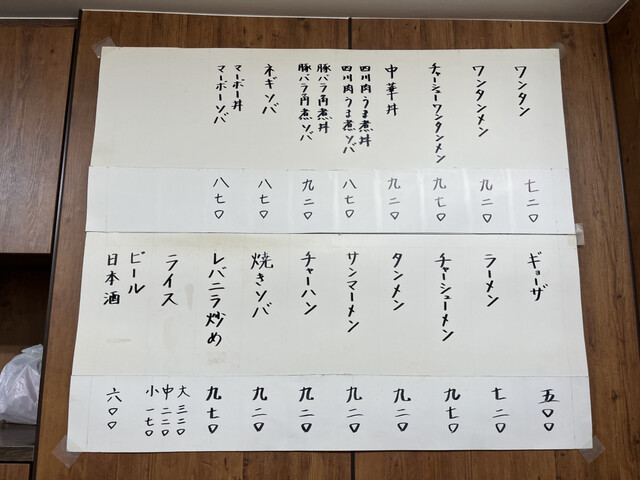 ワンタン
七二〇
ワンタンメン
九二〇
チャーシューワンタンメン
九七〇
中華丼
九二〇
四川肉うま煮丼
四川肉うま煮ソバ
八七〇
豚バラ角煮丼
豚バラ角煮ソバ
九二〇
ネギソバ
八七〇
マーボー丼
マーボーソバ
八七〇
ギョーザ
五〇〇
ラーメン
七二〇
チャーシューメン
九七〇
タンメン
九二〇
サンマーメン
九二〇
チャーハン
九二〇
焼きソバ
九二〇
レバニラ炒め
九七〇
ライス
大三二〇
中二二〇
小一七〇
ビール
日本酒
六〇〇